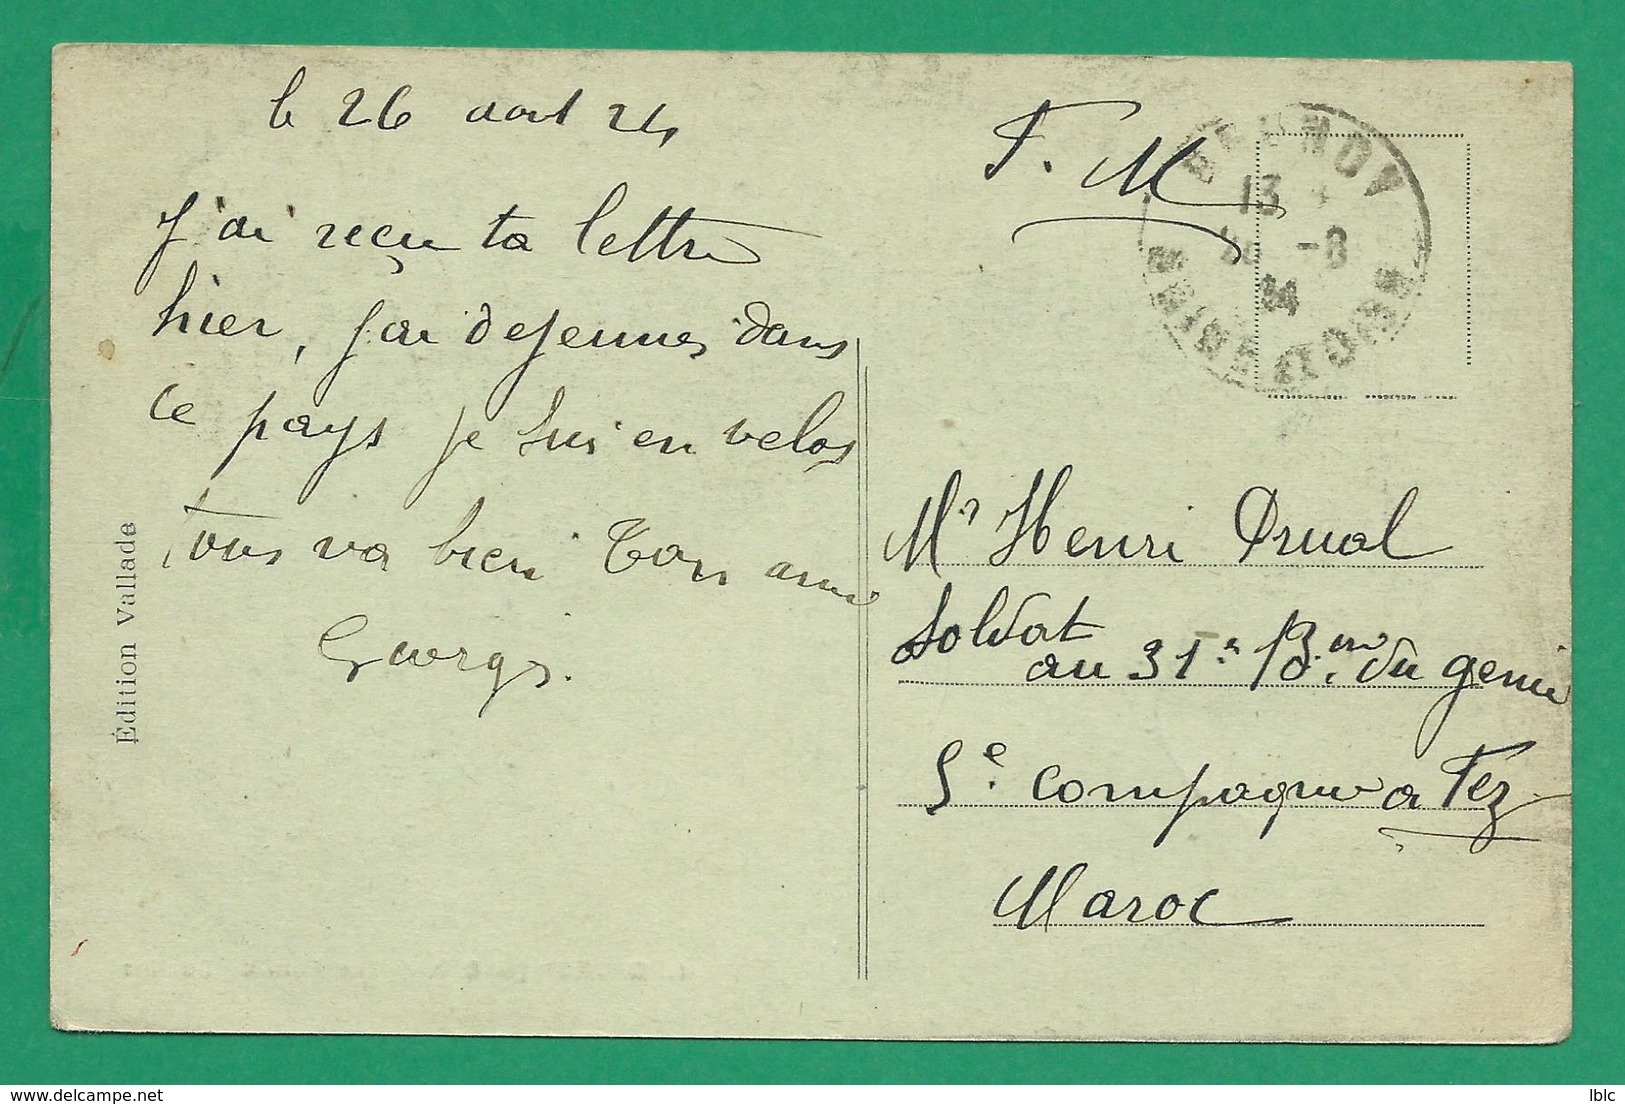 le 26 aout 24
J'ai reçu ta lettre
hier, j'ai dejeuner dans
ce pays je suis en velos
tous va bien Ton ami
Georges.
Édition Vallade
F. M
BRUNOY
13
26 -8
24
SEINE ET OISE
Mr Henri Druol
Soldat
au 31e B.on du genie
5e compagnie a Fez
Maroc
delcampe.net
lblc